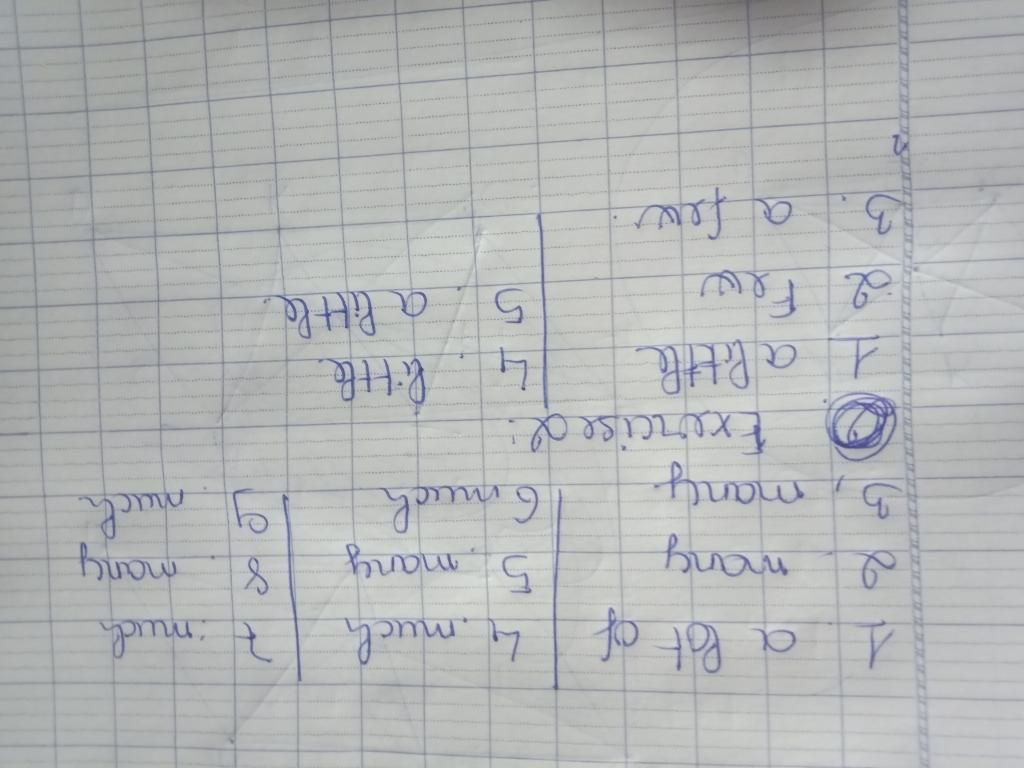 1 a lot of 4. much 7. much
2 many 5. many 8. many
3, many 6 much 9 much
Exercise 2:
1 a little 4. little
2 Few 5. a little.
3. a few.